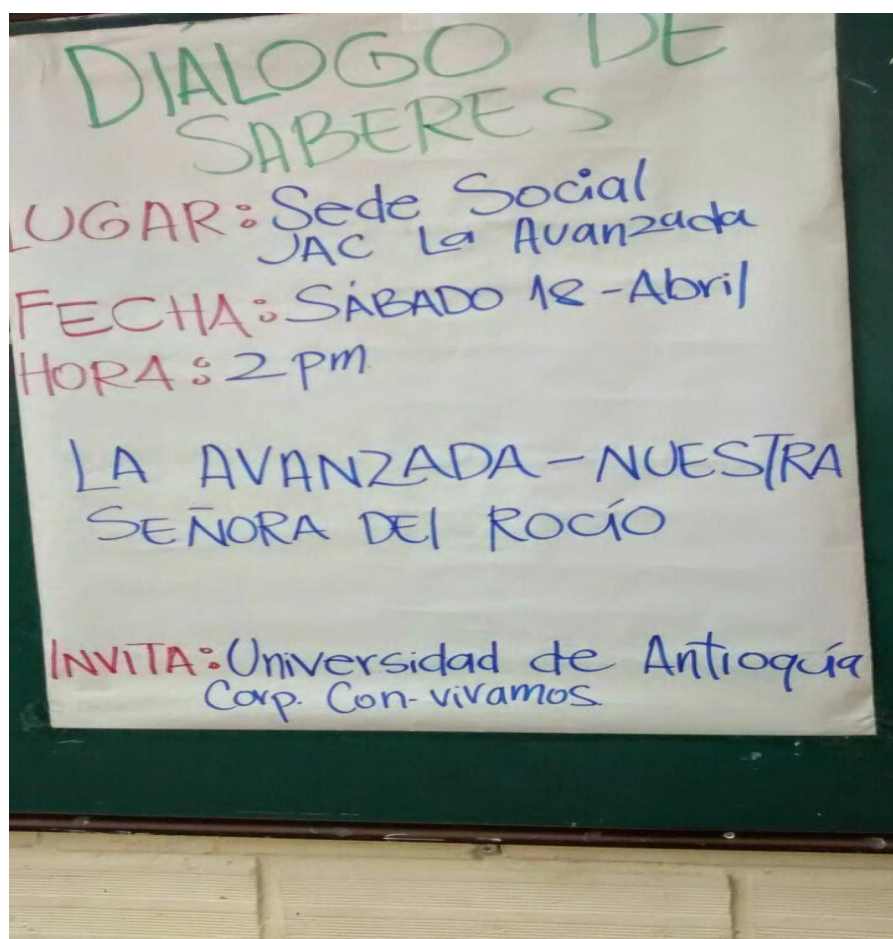 DIÁLOGO DE
SABERES
LUGAR: Sede Social
JAC La Avanzada
FECHA: SÁBADO 18-Abril
HORA: 2 pm
LA AVANZADA-NUESTRA
SEÑORA DEl ROCÍO
INVITA: Universidad de Antioquía
Corp. Con-vivamos